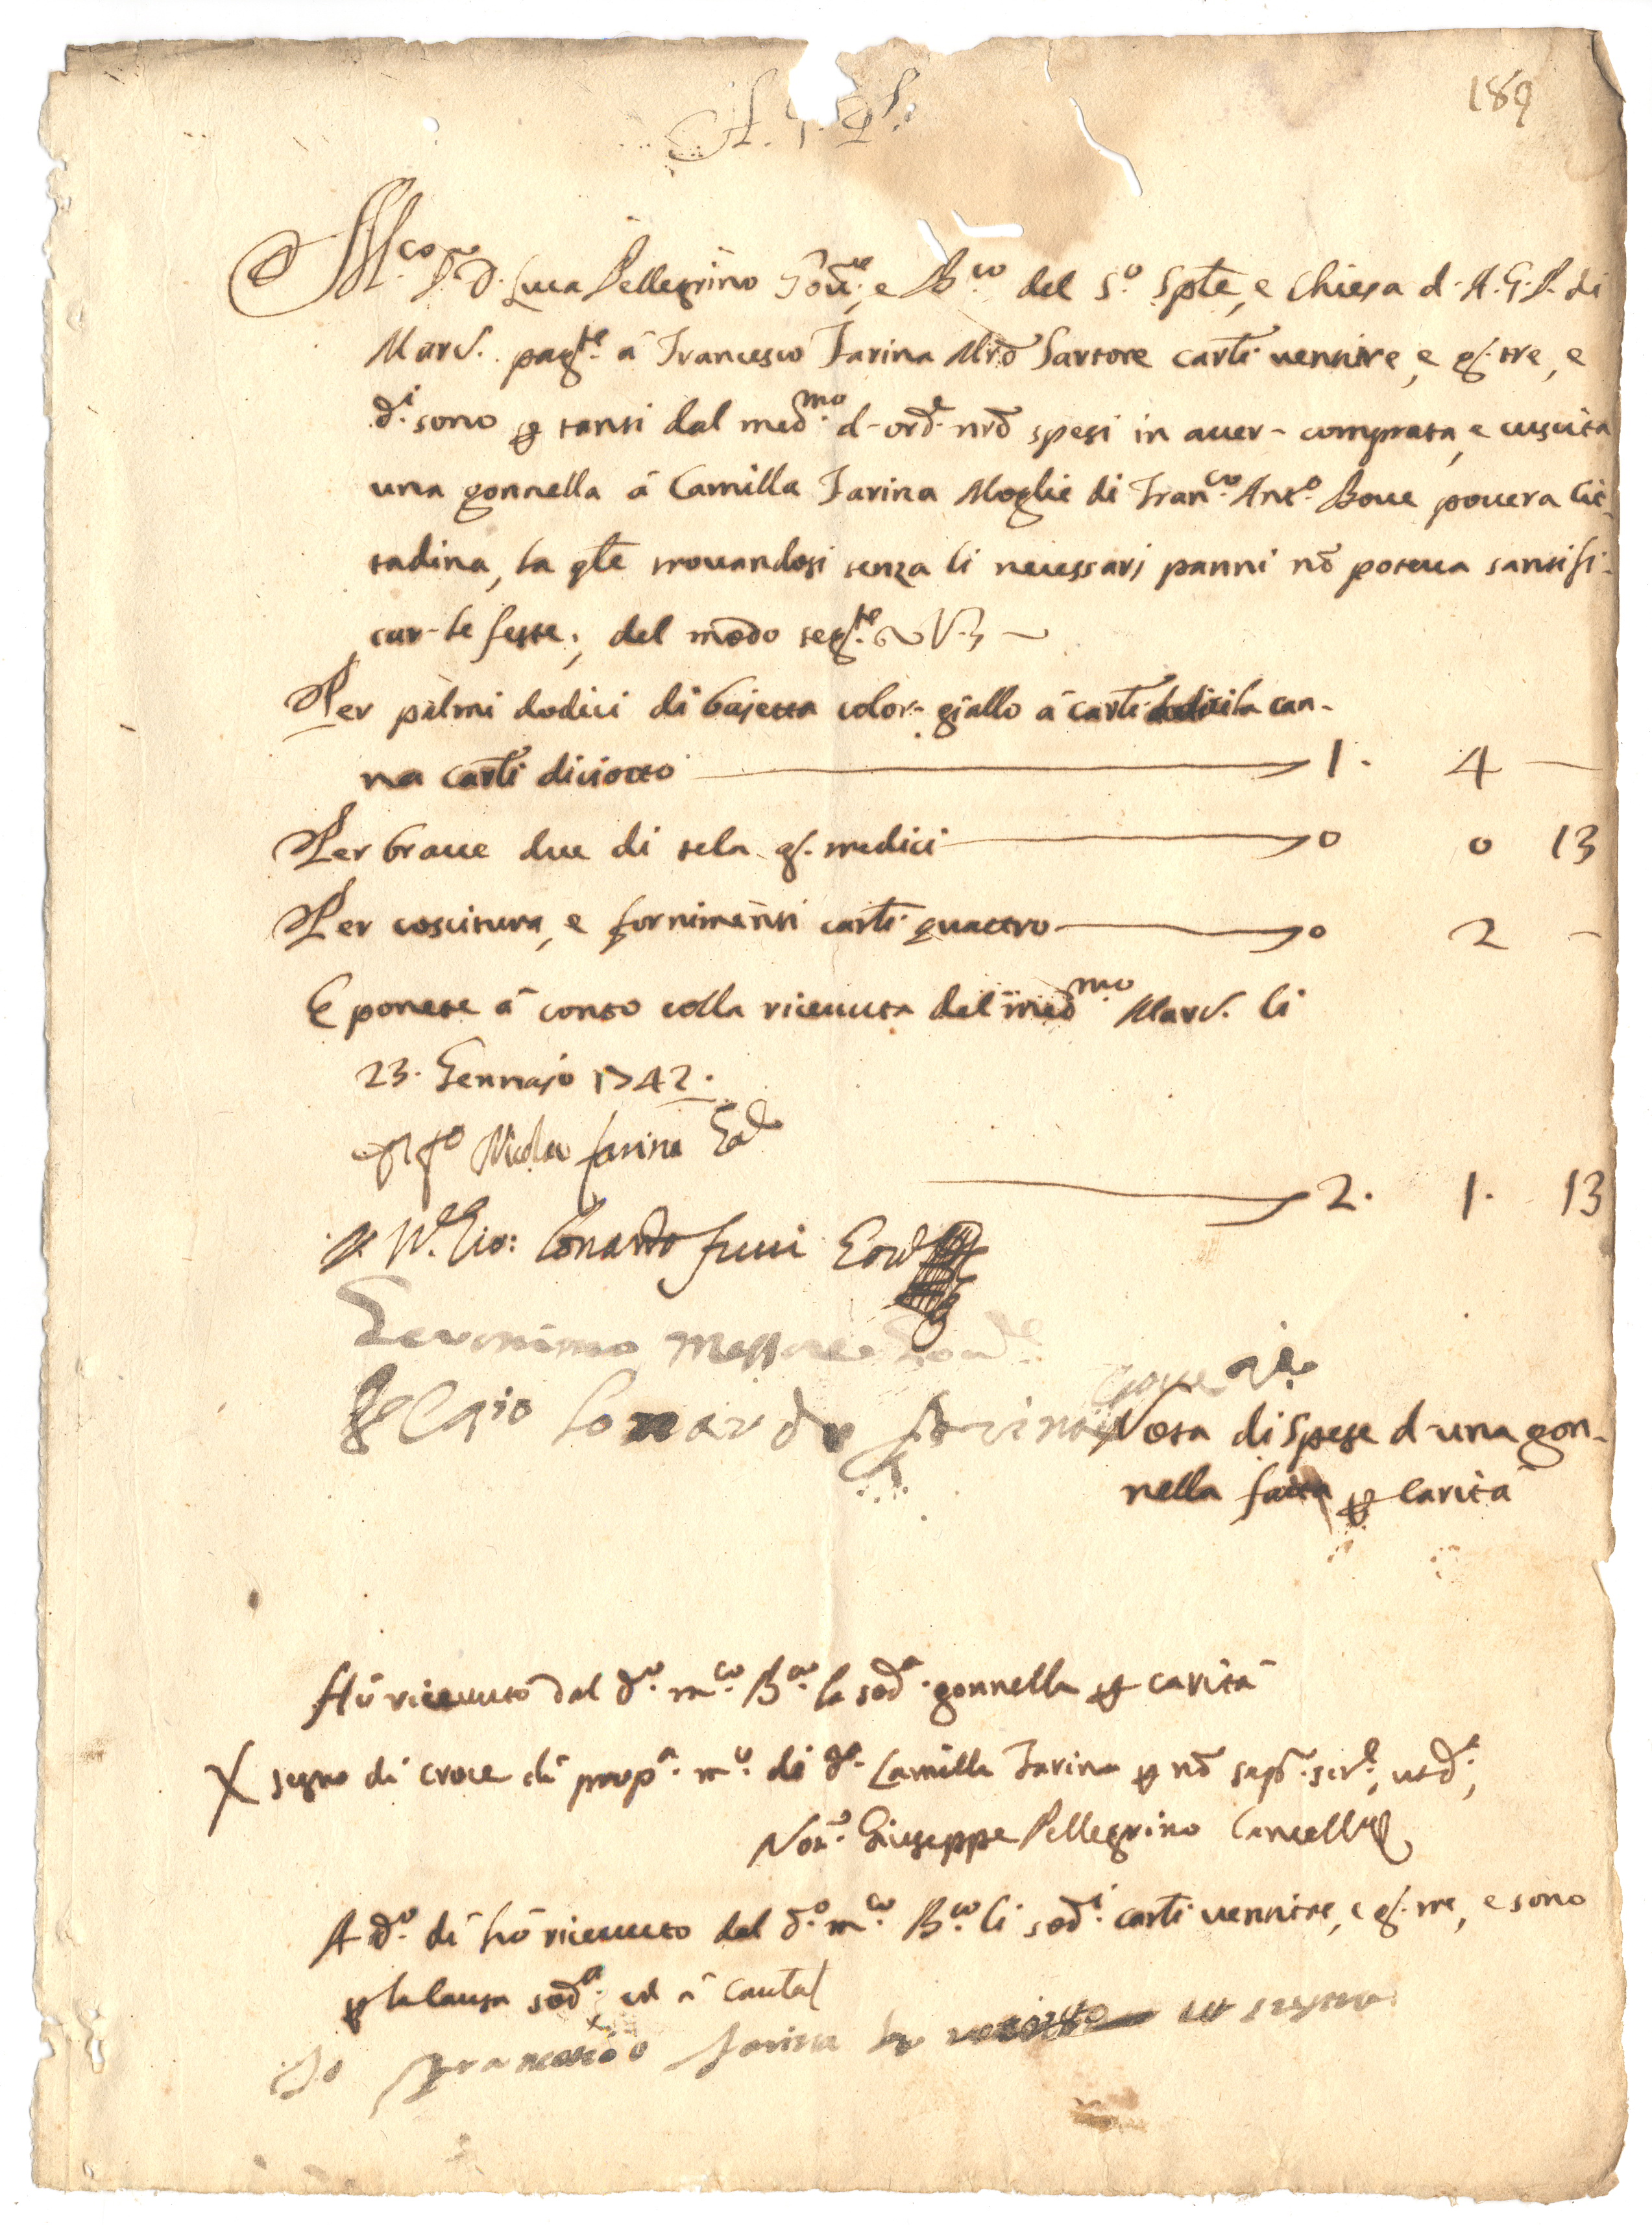 A. G. P.
189
M.co Sr. D. Luca Pellegrino Gov.re, e B.co del S.o Sple, e Chiesa d. A. G. P. di
Marc. pag.te à Francesco Farina Mrõ Sartore carl.i ventitre, e g. tre, e
d.i sono p tanti dal med.mo d. ord.e nrõ spesi in aver- comprata, e cuscita
una gonnella à Camilla Farina Moglie di Fran.co Ant.o Bove povera Cit-
tadina, la qle trovandosi senza li necessarj panni nõ poteva santifi-
car- le feste; del modo seg.te V3
Per palmi dodici di bajetta color giallo à carl.i dodici la can-
na carl.i diciotto 1. 4 —
Per brace due di tela g. tredici 0 0 13
Per coscitura, e fornimenti carl.i quattro 0 2 -
E ponete à conto colla ricevuta del med.mo Marc. li
23. Gennajo 1742.
Nicola farina
2. 1. 13
Gio: Lonardo
Geronimo Messore
Lonardo farina
Nota di spese d una gon-
nella fatta p carità
Hò ricevuto dal d.o m.co B.co la sod.a gonnella p carità
X segno di croce di prop.a m.o di d.a Camilla Farina p nõ sap.r scr.e, ut d.r,
Not.r Giuseppe Pellegrino Cancell.re
A d.o dì hò ricevuto dal d.o m.co B.co li sod.i carl.i ventitre, e g. tre, e sono
p la causa sod.a ed à cautal
Io Francesco farina ho